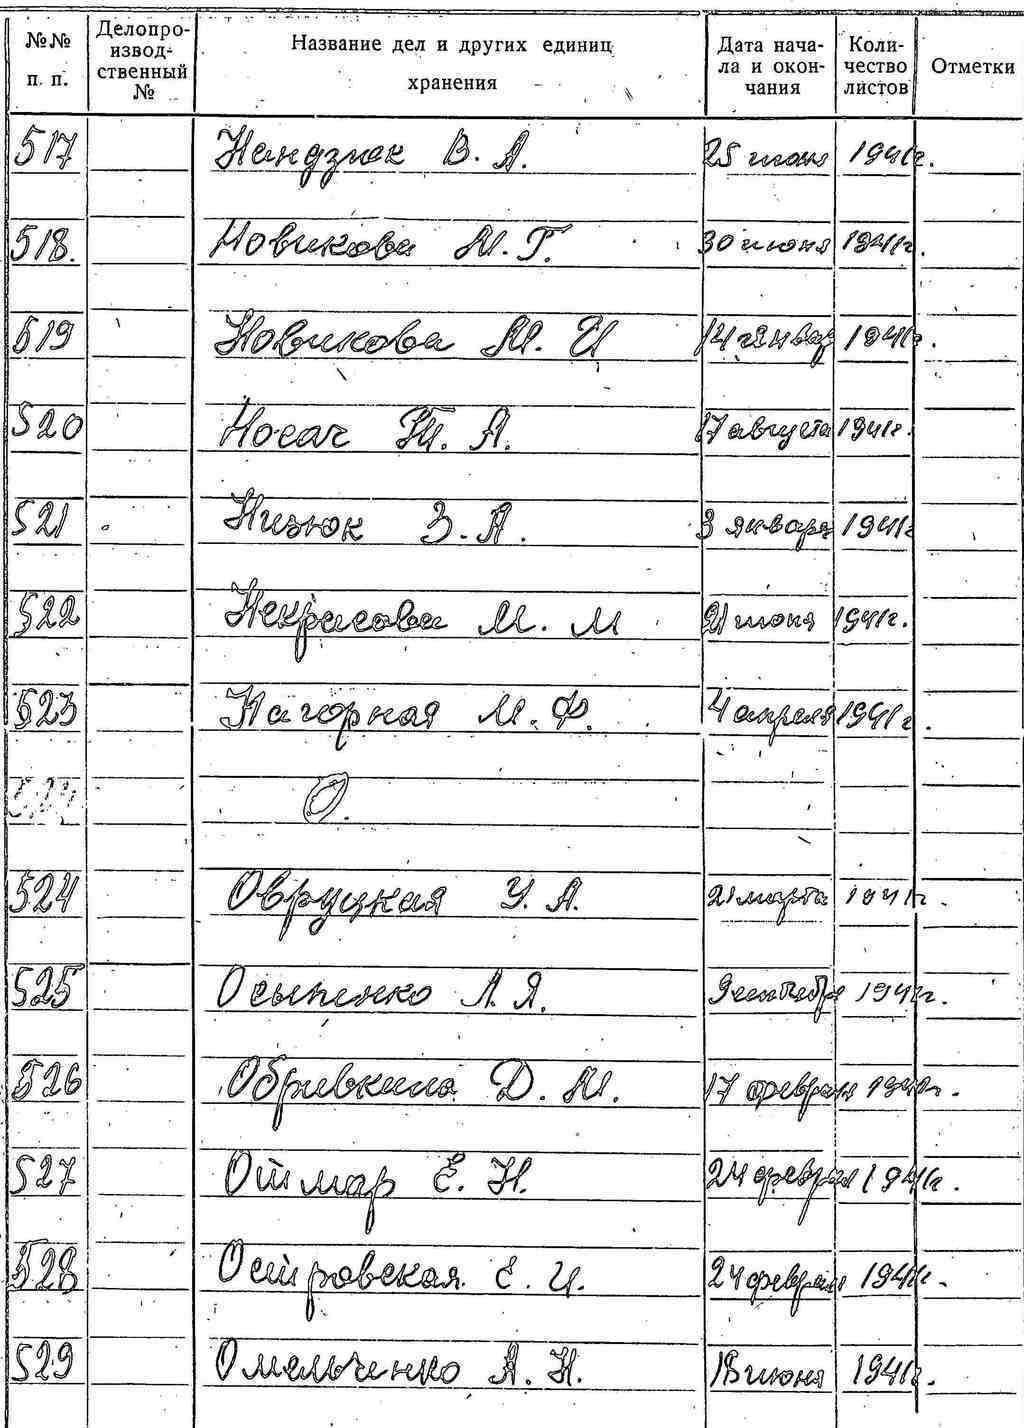 №№ п. п. Делопро-извод-ственный № Название дел и других единиц хранения Дата нача-ла и окон-чания Коли-чество листов Отметки
517 Нандзюк В. А. 25 июня 1941г.
518. Новикова М. Г. 30 июня 1941г.
519 Новикова М. И 14 январ 1941г.
520 Носач Т. А. 17 августа 1941г.
521 Низюк З. А. 3 января 1941г
522 Некрасова М. М 21 июня 1941г.
523 Нагорная М. Ф. 4 апреля 1941г.
О.
524 Овруцкая У. А. 21 марта 1941г.
525 Осыпенко А. Я. 1941г.
526 Обривкина Д. М. 17 феврал 1941г.
527 Отмар Е. Н. 24 феврал 1941г.
528 Островская Е. И. 24 феврал 1941г.
529 Омельченко А. Н. 18 июня 1941г.